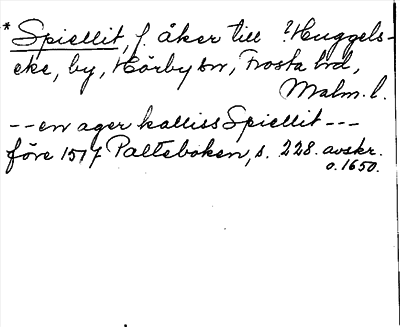 * Spiellit, f. åker till ? Huggels-
eke, by, Hörby sn, Frosta hd,
Malm. l.
-- en ager kalliss Spiellit ---
före 1517 Palteboken, s. 228. avskr.
o. 1650.